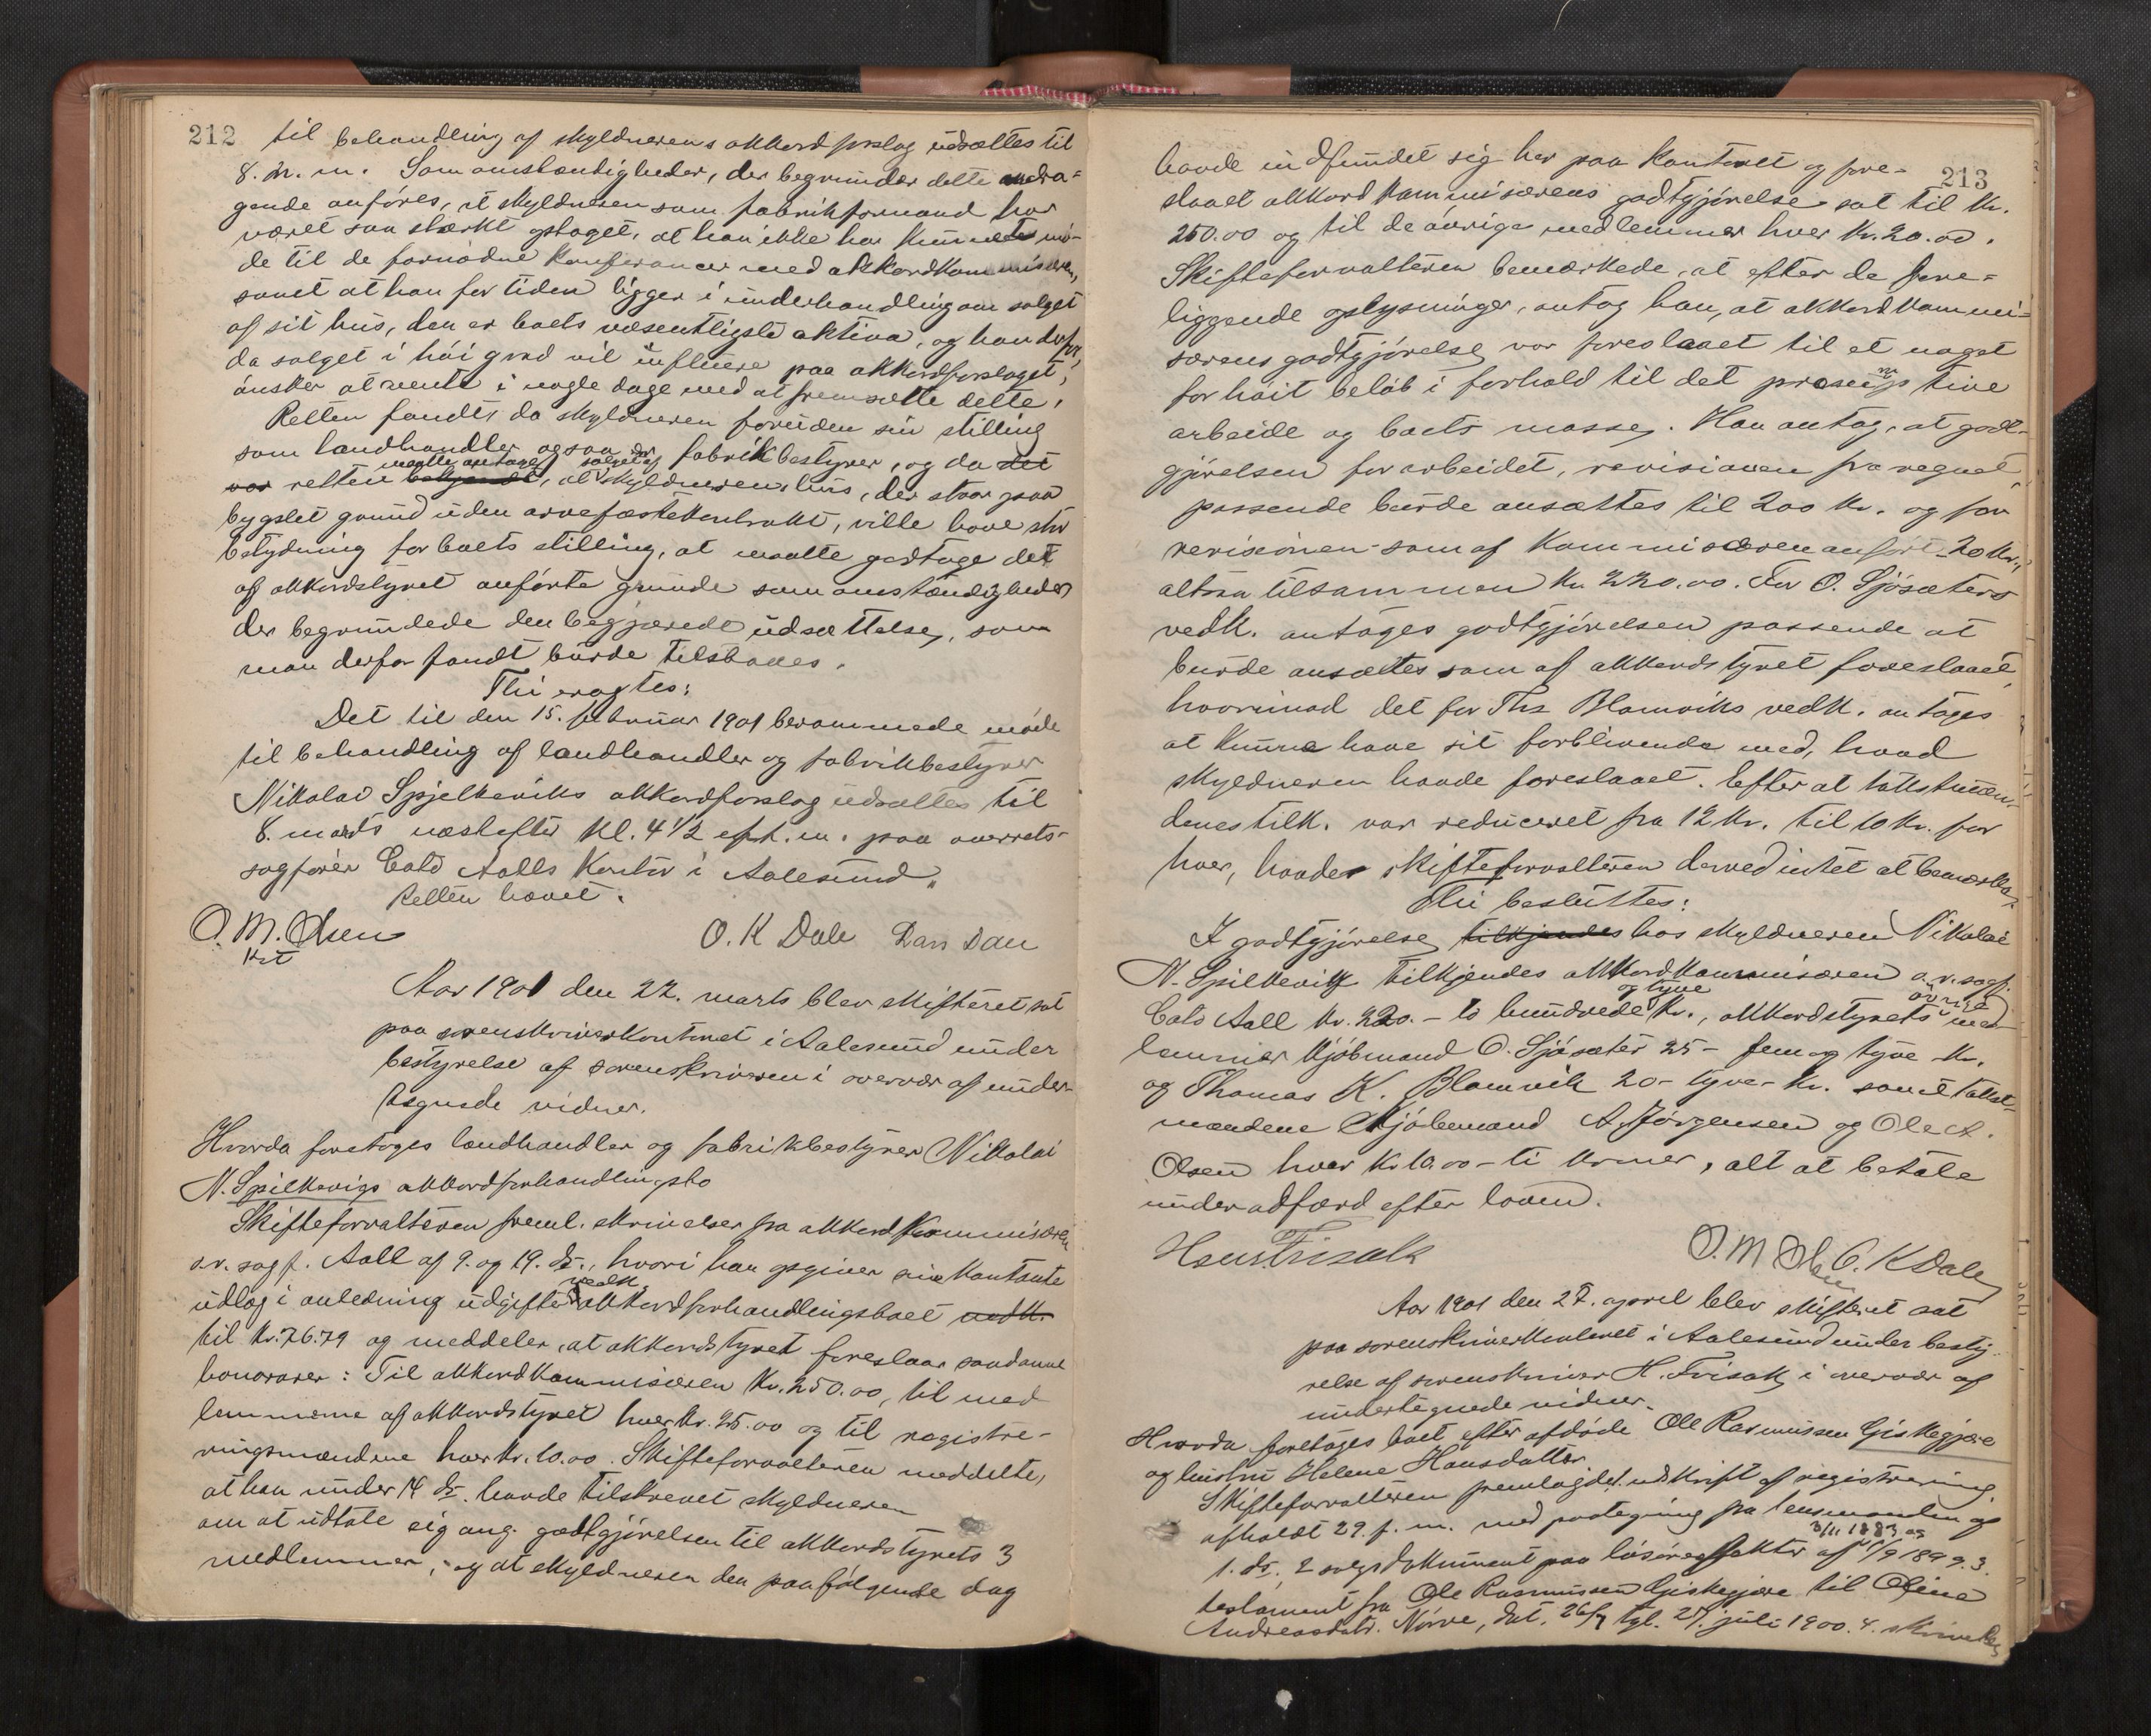 212
til behandling af skyldnerens akkordforslag udsættes til
8. n. m. Som omstændigheder, der begrunder dette andra-
gende anføres, at skyldneren som fabrikformand har
været saa stærkt optaget, at han ikke har kunnet mö-
de til de fornödne konferancer med akkordkommisæren,
samt at han for tiden ligger i underhandling om salget
af sit hus, den er boets væsentligste aktiva, og han derfor,
da salget i höi grad vil influere paa akkordforslaget,
önsker at vente i nogle dage med at fremsætte dette.
Retten fandt, da skyldneren foruden sin stilling
som landhandler ogsaa er fabrikbestyrer, og da det
var retten maatte antage, at salget af skyldnerens hus, der staar paa
bygslet grund uden arvefæstekontrakt, ville have stor
betydning for boets stilling, at maatte godtage det
af akkordstyret anförte grunde som omstændigheder
der begrundede den begjærede udsættelse, som
man derfor fandt burde tilstaaes.
Thi eragtes:
Det til den 15. februar 1901 berammede möde
til behandling af landhandler og fabrikbestyrer
Nikolai Spjelkeviks akkordforslag udsættes til
8. marts næstefter kl. 4 1/2 eft. m. paa overrets-
sagförer Cato Aalls kontor i Aalesund.
Retten hævet.
O. M. Olsen
kst
O. K Dale Dan Dan
Aar 1901 den 22. marts blev skifteret sat
paa sorenskriverkontoret i Aalesund under
bestyrelse af sorenskriveren i overvær af under-
tegnede vidner.
Hvorda foretoges landhandler og fabrikbestyrer Nikolai
N. Spilkevigs akkordforhandlingsbo
Skifteforvalteren freml. skrivelser fra akkordkommisæren
o.r. sagf. Aall af 9. og 19. ds., hvori han opgiver sine kontante
udlæg i anledning udgifter vedk. akkordforhandlingsboet vedk.
til kr. 76.79 og meddeler, at akkordstyret foreslaar saadanne
honorarer: Til akkordkommisæren kr. 250.00, til med-
lemmerne af akkordstyret hver kr. 25.00 og til registre-
ringsmændene hver kr. 10.00. Skifteforvalteren meddelte,
at han under 14 ds. havde tilskrevet skyldneren
om at udtale sig ang. godtgjörelsen til akkordstyrets 3
medlemmer, og at skyldneren den paafölgende dag
213
havde indfundet sig her paa kontoret og fore-
slaaet akkordkommisærens godtgjörelse sat til kr.
250.00 og til de övrige medlemmer hver kr. 20.00.
Skifteforvalteren bemærkede, at efter de fore-
liggende oplysninger, antog han, at akkordkommi-
særens godtgjörelse var foreslaaet til et noget
for höit belöb i forhold til det præsterede
arbeide og boets masse. Han antog, at godt-
gjörelsen for arbeidet, revisionen fraregnet,
passende burde ansættes til 200 kr. og for
revisionen som af kommisæren anfört 20 kr.,
altsaa tilsammen kr. 220.00. For O. Sjösæters
vedk. antoges godtgjörelsen passende at
burde ansættes som af akkordstyret foreslaaet,
hvorimod det for Ths Blomviks vedk. antoges
at kunne have sit forblivende med, hvad
skyldneren havde foreslaaet. Efter at takstmæn-
denes tilk. var reduceret fra 12 kr. til 10 kr. for
hver, havde skifteforvalteren derved intet at bemærke.
Thi besluttes:
I godtgjörelse tilkjendes hos skyldneren Nikolai
N. Spilkevik tilkjendes akkordkommisæren o.r. sagf.
Cato Aall kr. 220.- to hundrede og tyve kr., akkordstyrets övrige med-
lemmer kjöbmand O. Sjösæter 25- fem og tyve kr.
og Thomas K. Blomvik 20- tyve- kr. samt takst-
mændene kjöbmand A. Jörgensen og Ole A.
Olsen hver kr 10.00 - ti kroner, alt at betale
under adfærd efter loven.
Hans Frisak
O. M Olsen O. K Dale
Aar 1901 den 27. april blev skifteret sat
paa sorenskriverkontoret i Aalesund under besty-
relse af sorenskriver H. Frisak i overvær af
undertegnede vidner.
Hvorda foretoges boet efter afdöde Ole Rasmussen Giskegjære
og hustru Helene Hansdatter.
Skifteforvalteren fremlagde 1. udskrift af registrering
afholdt 29. f. m. med paategning fra lensmanden af
1. ds., 2 salgsdokument paa lösöreeffekter af 3/11 1883 og /9 1899. 3.
testament fra Ole Rasmussen Giskegjære til Oline
Andreasdatr. Nörve, dat. 26/7 tgl. 27. juli 1900. 4. skrivelse